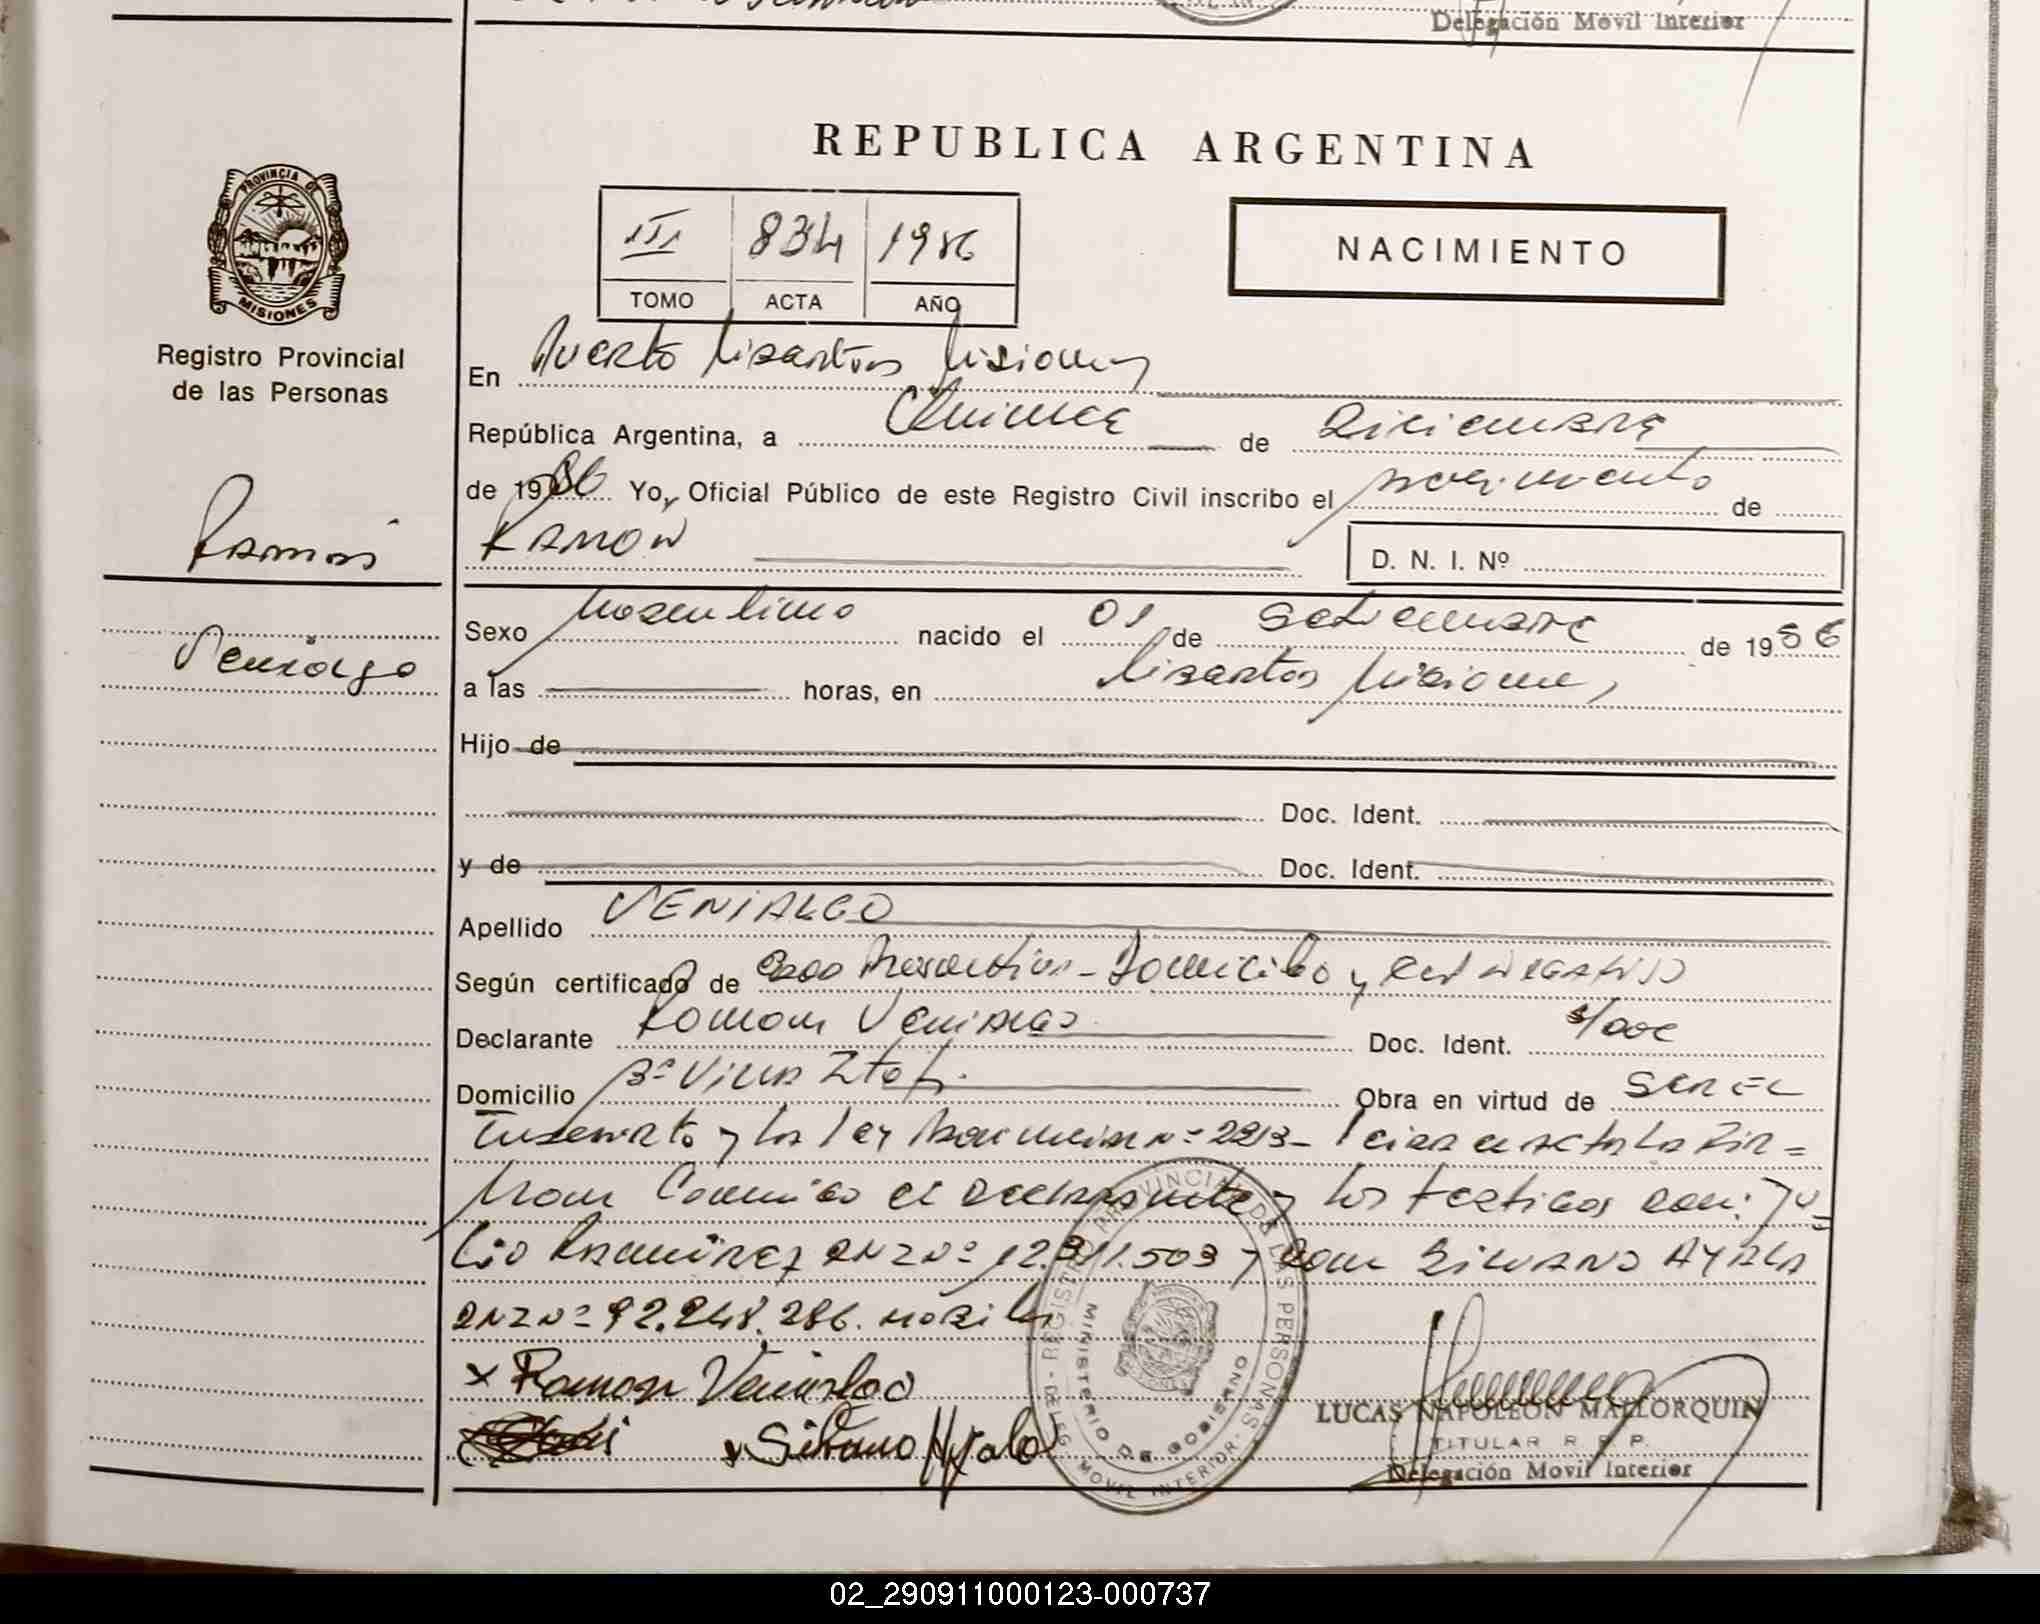 Delegación Movil Interior
REPUBLICA ARGENTINA
PROVINCIA DE
MISIONES
Registro Provincial
de las Personas
III 834 1986
TOMO ACTA AÑO
NACIMIENTO
En Puerto Libertad Misiones
República Argentina, a Quince de Diciembre
de 1986 Yo, Oficial Público de este Registro Civil inscribo el nacimiento de
Ramon
RAMON
D. N. I. Nº
Sexo Masculino nacido el 01 de Setiembre de 1986
Venialgo
a las horas, en Libertad Misiones
Hijo de
Doc. Ident.
y de Doc. Ident.
Apellido VENIALGO
Según certificado de Domicilio y NEGATIVO
Declarante Ramon Venialgo Doc. Ident. s/doc
Domicilio Bº Villa Obra en virtud de SER EL
Inscripto y la ley Nº 2213- Leida el acta la fir=
man Conmigo el declarante y los testigos don: Ju=
lio Ramirez DNI Nº 12. .503 y don SILVANO AYALA
DNI Nº 92.248.286.
x Ramon Venialgo
x Silvano Ayala
REGISTRO PROVINCIAL DE LAS PERSONAS
MINISTERIO DE GOBIERNO
DELEG. MOVIL INTERIOR
LUCAS NAPOLEON MALLORQUIN
TITULAR R. P. P.
Delegación Movil Interior
02_290911000123-000737